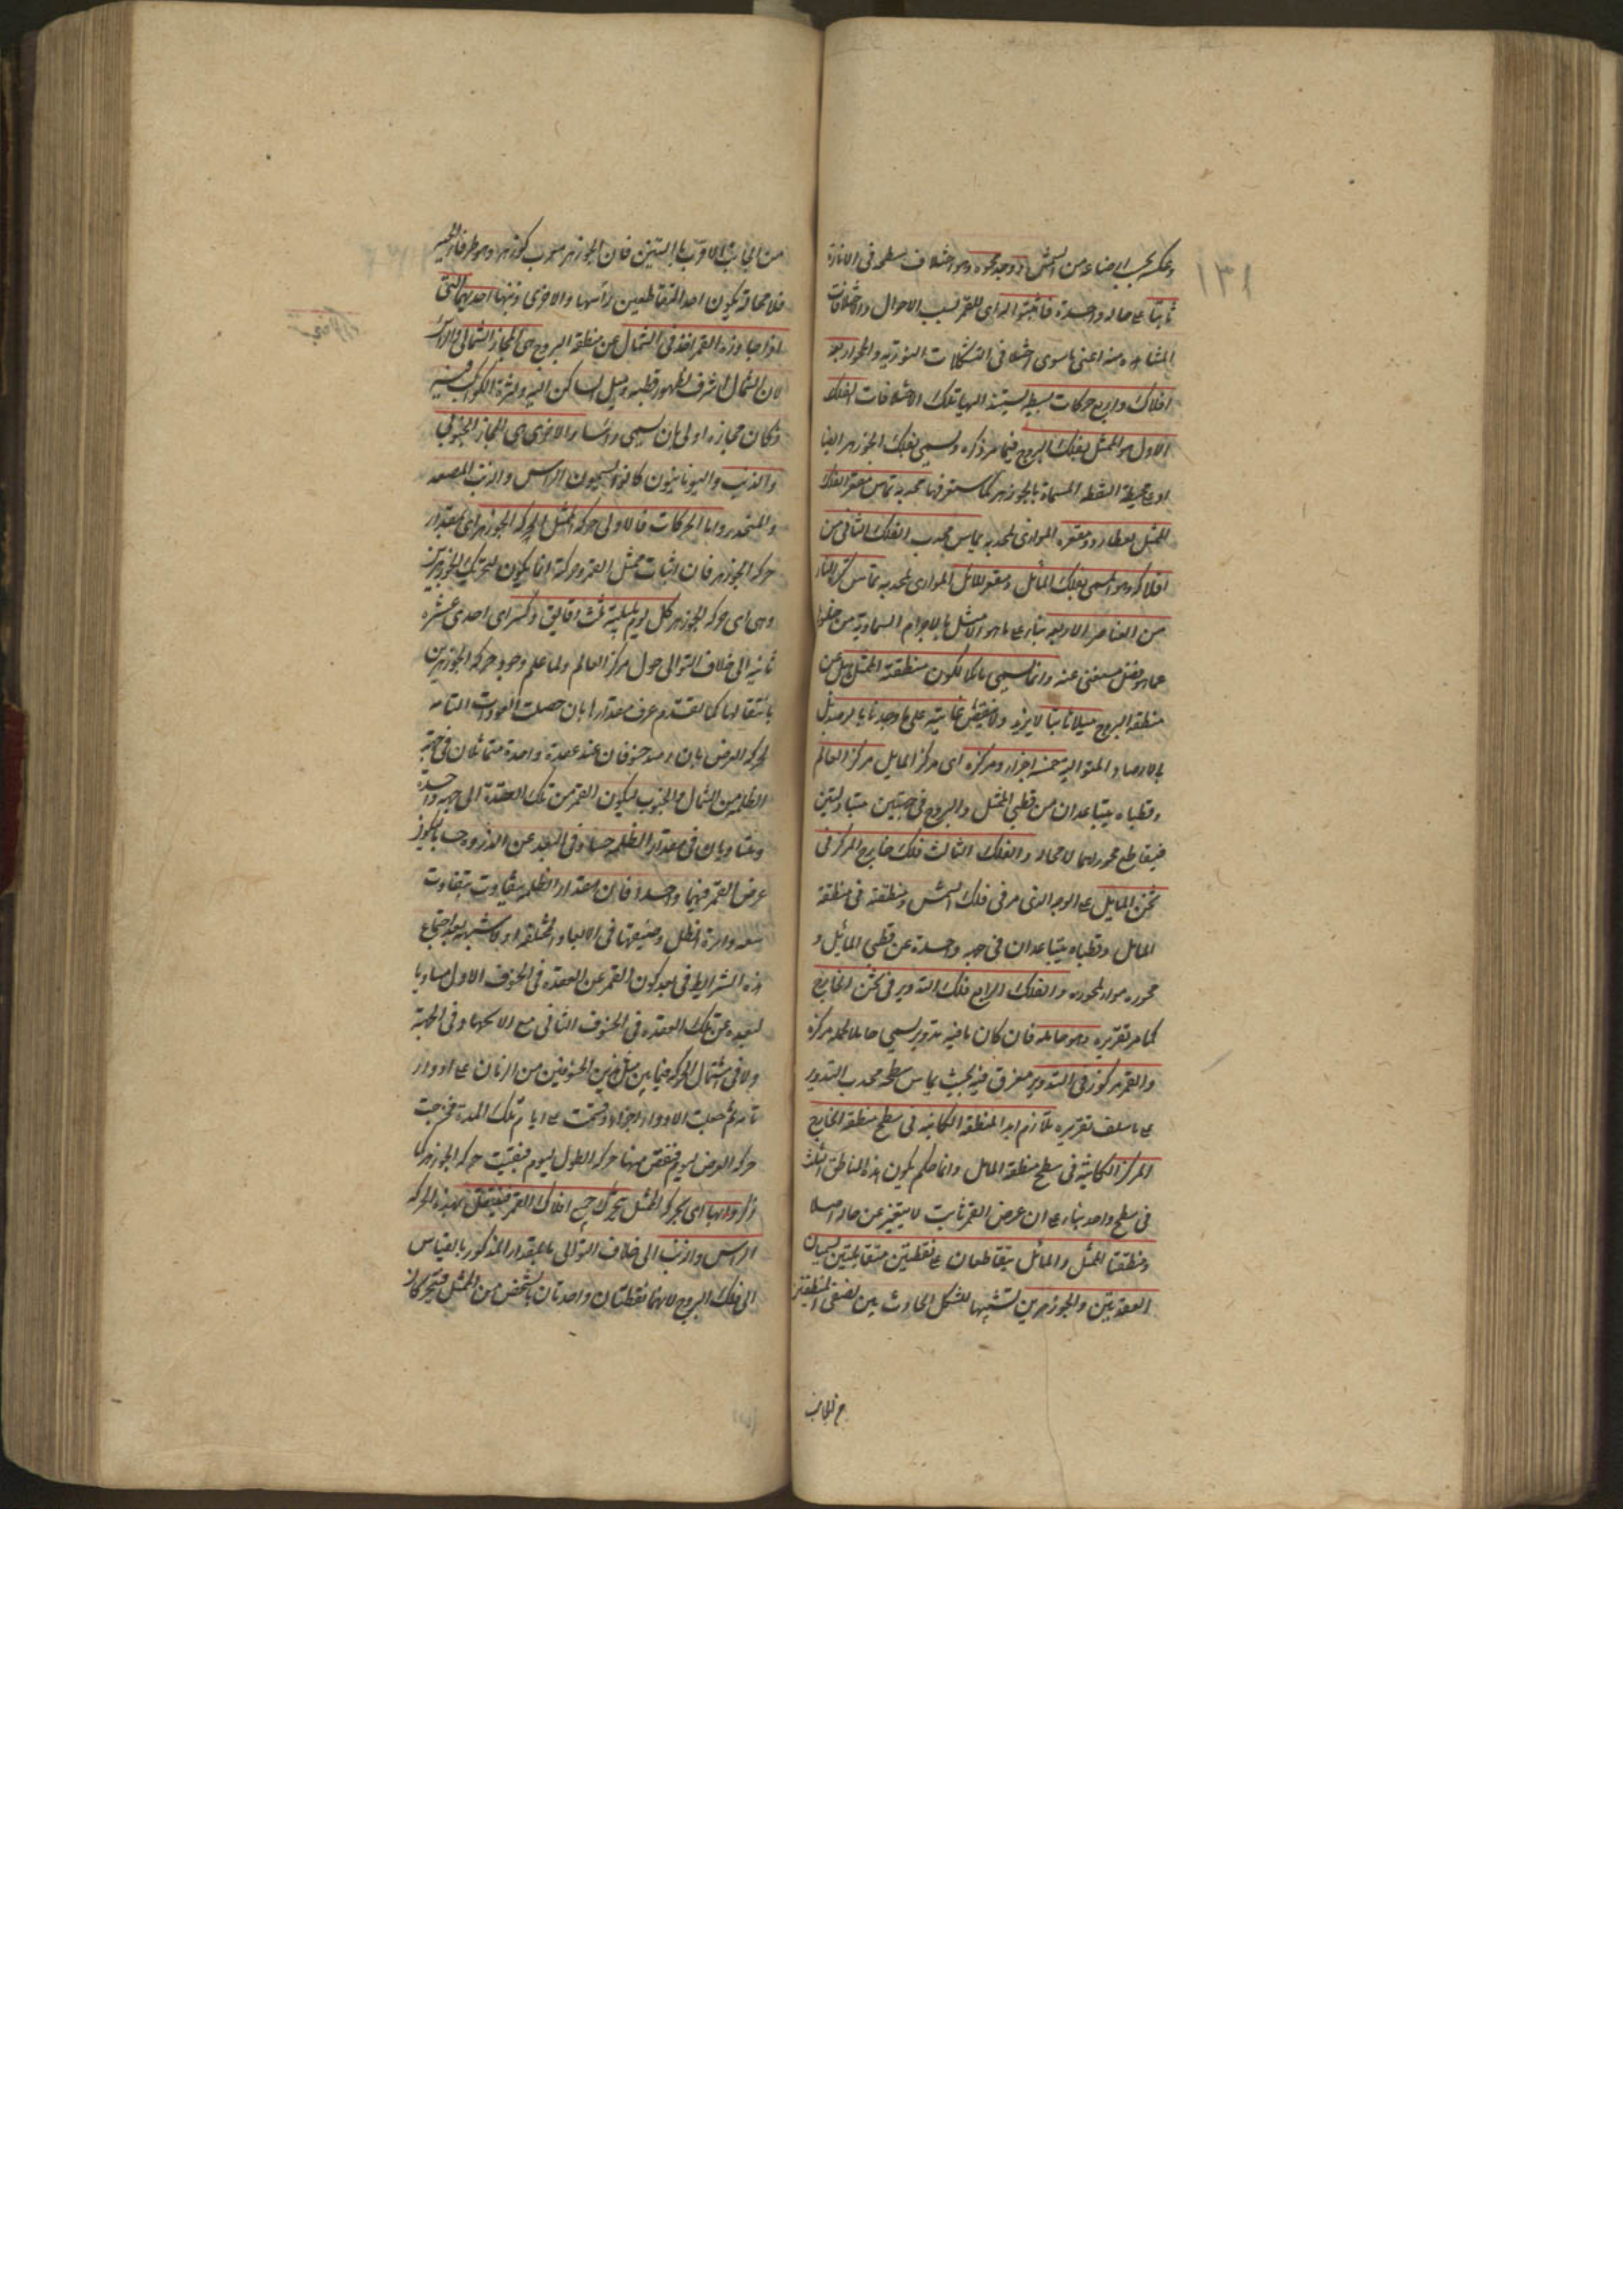 ١٣١
وعكسه بحسب الاضاءة من الشمس اذ وجد محوه وهو اختلاف سطحه فى الانارة
ثابتا على حالة واحدة فاثبتوا له اى للقمر بسبب الاحوال والاختلافات
المشاهدة منه اعنى ما سوى اختلافى التشكلات النورية والمحو اربعة
افلاك واربع حركات بسيطة يستند اليها تلك الاختلافات الفلك
الاول هو الممثل بفلك البروج فيما مر ذكره ويسمى بفلك الجوزهر ايضا
اذ على محيطه النقطة المسماة بالجوزهر كما ستعرفها محدبه تماس مقعر الفلك
الممثل لعطارد ومقعره الموازى لمحدبه يماس محدب الفلك الثانى من
افلاكه وهو المسمى بفلك المائل ومقعر المائل الموازى لمحدبه تماس كرة النار
من العناصر الاربعة بناء على ما هو الامثل بالاجرام السماوية من خلوها
عما هو فضل مستغنى عنه وانما يسمى مائلا لكون منطقته المائل عن
منطقة البروج ميلا ثابتا لا يزيد ولا ينقص غايته على ما وجد بالرصد بل
بالارصاد المتوالية خمسة اجزاء ومركزه اى مركز المايل مركز العالم
وقطباه يتباعدان من قطبى الممثل والبروج فى جهتين متبادلتين
فيتقاطع محوراهما لا محالة والفلك الثالث فلك خارج المركز فى
ثخن المايل على الوجه الذى مر فى فلك الشمس ومنطقته فى منطقة
المائل وقطباه يتباعدان فى جهة واحدة عن قطبى المائل و
محوره مواز لمحوره والفلك الرابع فلك التدوير فى ثخن الخارج
كما مر تقريره وهو حامله فان كان ما فيه تدوير يسمى حاملا لحمله مركزه
والقمر مركوز فى التدوير مغرق فيه بحيث يماس سطحه محدب التدوير
على ما سلف تقريره ملازم ابدا لمنطقته الكائنة فى سطح منطقة الخارج
المركز الكائنة فى سطح منطقة المائل وانما حكم بكون هذه المناطق الثلث
فى سطح واحد بناء على ان عرض القمر ثابت لا يتغير عن حاله اصلا
ومنطقتا الممثل والمائل يتقاطعان على نقطتين متقابلتين يسميان
العقدتين والجوزهرين تشبيها للشكل الحادث بين نصفى المنطقتين
من الجانب
من الجانب الاقرب بالتنين فان الجوزهر معرب كوزهر وهو طرفا الحية
فلا محالة يكون احد المتقاطعين راسها والاخرى ذنبها احديهما التى
اذا جاوزها القمر اخذ فى الشمال عن منطقة البروج هى المجاز الشمالى والراس
لان الشمال اشرف لظهور قطبه وميل المساكن اليه ولكثرة الكواكب فيه
وكان مجازه اولى بان يسمى روسا والاخرى هى المجاز الجنوبى
والذنب واليونانيون كانوا يسمون الراس والذنب المصعد
والمنحدر واما الحركات فالاولى حركة الممثل لحركة الجوزهر اى بمقدار
حركة الجوزهر فان اثبات ممثل القمر وحركته انما يكون لتحريك الجوزهرين
وهى اى حركة الجوزهر كل يوم بليلته ثلث دقايق وكسر اى احدى عشرة
ثانية الى خلاف التوالى حول مركز العالم ولما علم وجود حركة الجوزهرين
بانتقالها كما تقدم عرف مقدارها بان حصلت العودات التامة
لحركة العرض بان رصد خسوفان عند عقدة واحدة متماثلان فى جهة
الظلمة من الشمال والجنوب ليكون القمر من تلك العقدة الى جهة واحدة
ومتساويان فى مقدار الظلمة حسا وفى البعد عن الذروة حسا ليكون
عرض القمر فيهما واحدا فان مقدار الظلمة يتفاوت بتفاوت
سعة دائرة الظل وضيقها فى الابعاد المختلفة ولا شبهة بعد اجتماع
هذه الشرايط فى بعد كون القمر عن العقدة فى الخسوف الاول مساويا
لبعده عن تلك العقدة فى الخسوف الثانى مع الاتحاد فى الجهة
ولا فى اشتمال الحركة فيما بين مثل هذين الخسوفين من الزمان على ادوار
تامة ثم جعلت الادوار اجزاء وقسمت على ايام تلك المدة فخرجت
حركة العرض ليوم فنقص منها حركة الطول ليوم فبقيت حركة الجوزهر كما
ذكر وانها اى بحركة الممثل يتحرك جميع افلاك القمر فينتقل بهذه الحركة
الراس والذنب الى خلاف التوالى بالمقدار المذكور بالقياس
الى فلك البروج لانهما نقطتان واحدتان بالشخص من الممثل فيتحركان